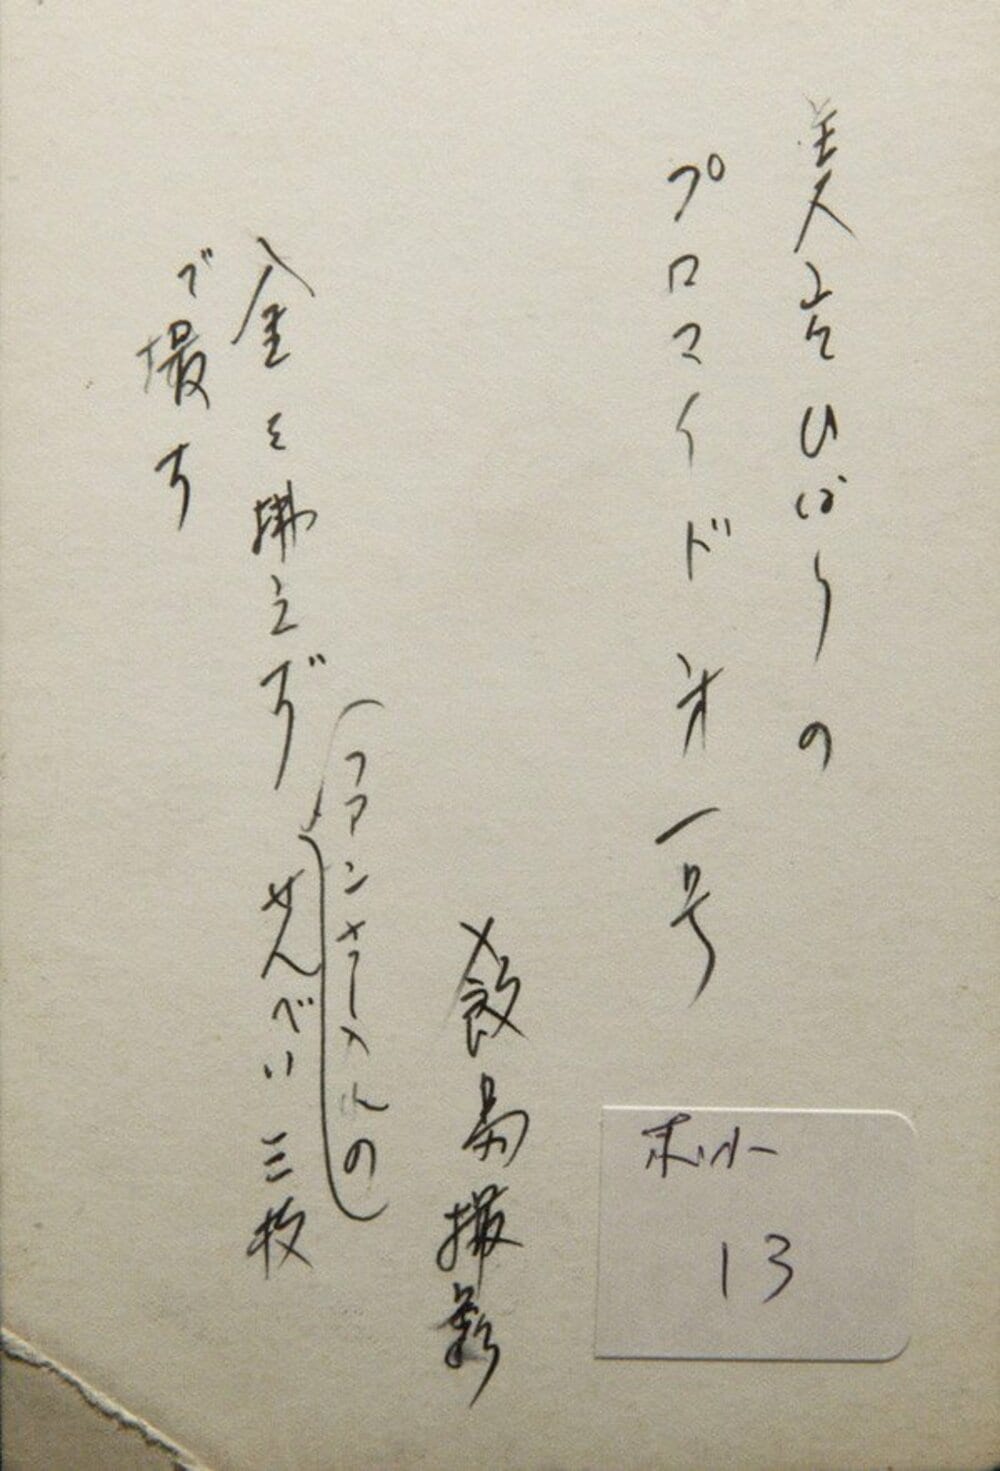 美空ひばりの
プロマイド才一号
飯島撮影
(ファンさし入れの)
金を拂えずせんべい三枚
で撮す
13